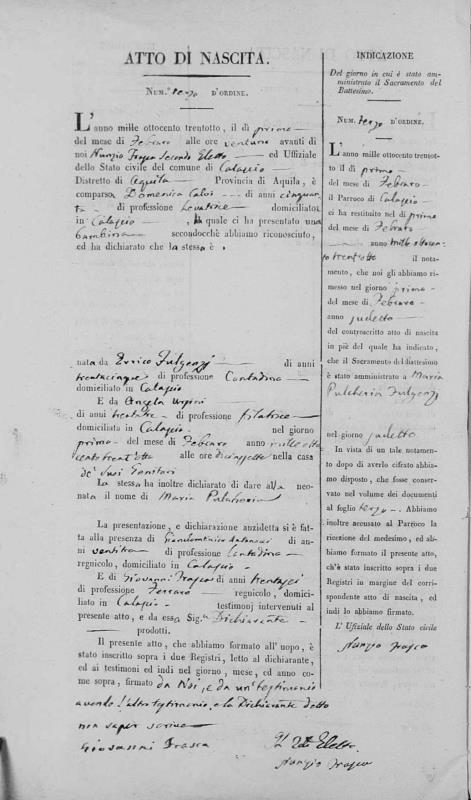 ATTO DI NASCITA.
NUM.° terzo D'ORDINE.
L'anno mille ottocento trentotto, il dì primo
del mese di Febraro alle ore ventuno avanti di
noi Nunzio Frasca Secondo Eletto ed Uffiziale
dello Stato civile del comune di Calascio
Distretto di Aquila Provincia di Aquila, è
comparsa Domenica Calvi di anni cinquan
ta di professione Levatrice domiciliata
in Calascio, la quale ci ha presentato una
bambina secondochè abbiamo riconosciuto,
ed ha dichiarato che la stessa è
nata da Errico Fulgenzj di anni
trentacinque di professione Contadino
domiciliato in Calascio
E da Angela
di anni trentatre di professione filatrice
domiciliata in Calascio nel giorno
primo del mese di Febraro anno mille otto
cento trent'otto alle ore diciassette nella casa
de' suoi Genitori
La stessa ha inoltre dichiarato di dare alla neo-
nata il nome di Maria Pulcheria
La presentazione, e dichiarazione anzidetta si è fat-
ta alla presenza di Giandomenico di an-
ni ventitre di professione Contadino
regnicolo, domiciliato in Calascio
E di Giovanni Frasca di anni trentasei
di professione Ferraro regnicolo, domici-
liato in Calascio testimonj intervenuti al
presente atto, e da essa Sig.ª Dichiarante
prodotti.
Il presente atto, che abbiamo formato all'uopo, è
stato inscritto sopra i due Registri, letto al dichiarante,
ed ai testimoni ed indi nel giorno, mese, ed anno co-
me sopra, firmato da Noi, e da un' testimonio
avendo l'altro testimonio, e la Dichiarante detto
non saper scrivere
Giovanni Frasca
Il 2do Eletto
Nunzio Frasca
INDICAZIONE
Del giorno in cui è stato am-
ministrato il Sacramento del
Battesimo.
NUM. terzo D'ORDINE.
L'anno mille ottocento trentot-
to il dì primo
del mese di Febraro
il Parroco di Calascio
ci ha restituito nel dì primo
del mese di Febraro
anno mille ottocen
to trent'otto il nota-
mento, che noi gli abbiamo ri-
messo nel giorno primo
del mese di Febraro
anno sudetto
del controscritto atto di nascita
in piè del quale ha indicato,
che il Sacramento del Battesimo
è stato amministrato a Maria
Pulcheria Fulgenzj
nel giorno sudetto
In vista di un tale notamen-
to dopo di averlo cifrato abbia-
mo disposto, che fosse conser-
vato nel volume dei documenti
al foglio terzo. Abbiamo
inoltre accusato al Parroco la
ricezione del medesimo, ed ab-
biamo formato il presente atto,
ch'è stato inscritto sopra i due
Registri in margine del corri-
spondente atto di nascita, ed
indi lo abbiamo firmato.
L'Uffiziale dello Stato civile
Nunzio Frasca